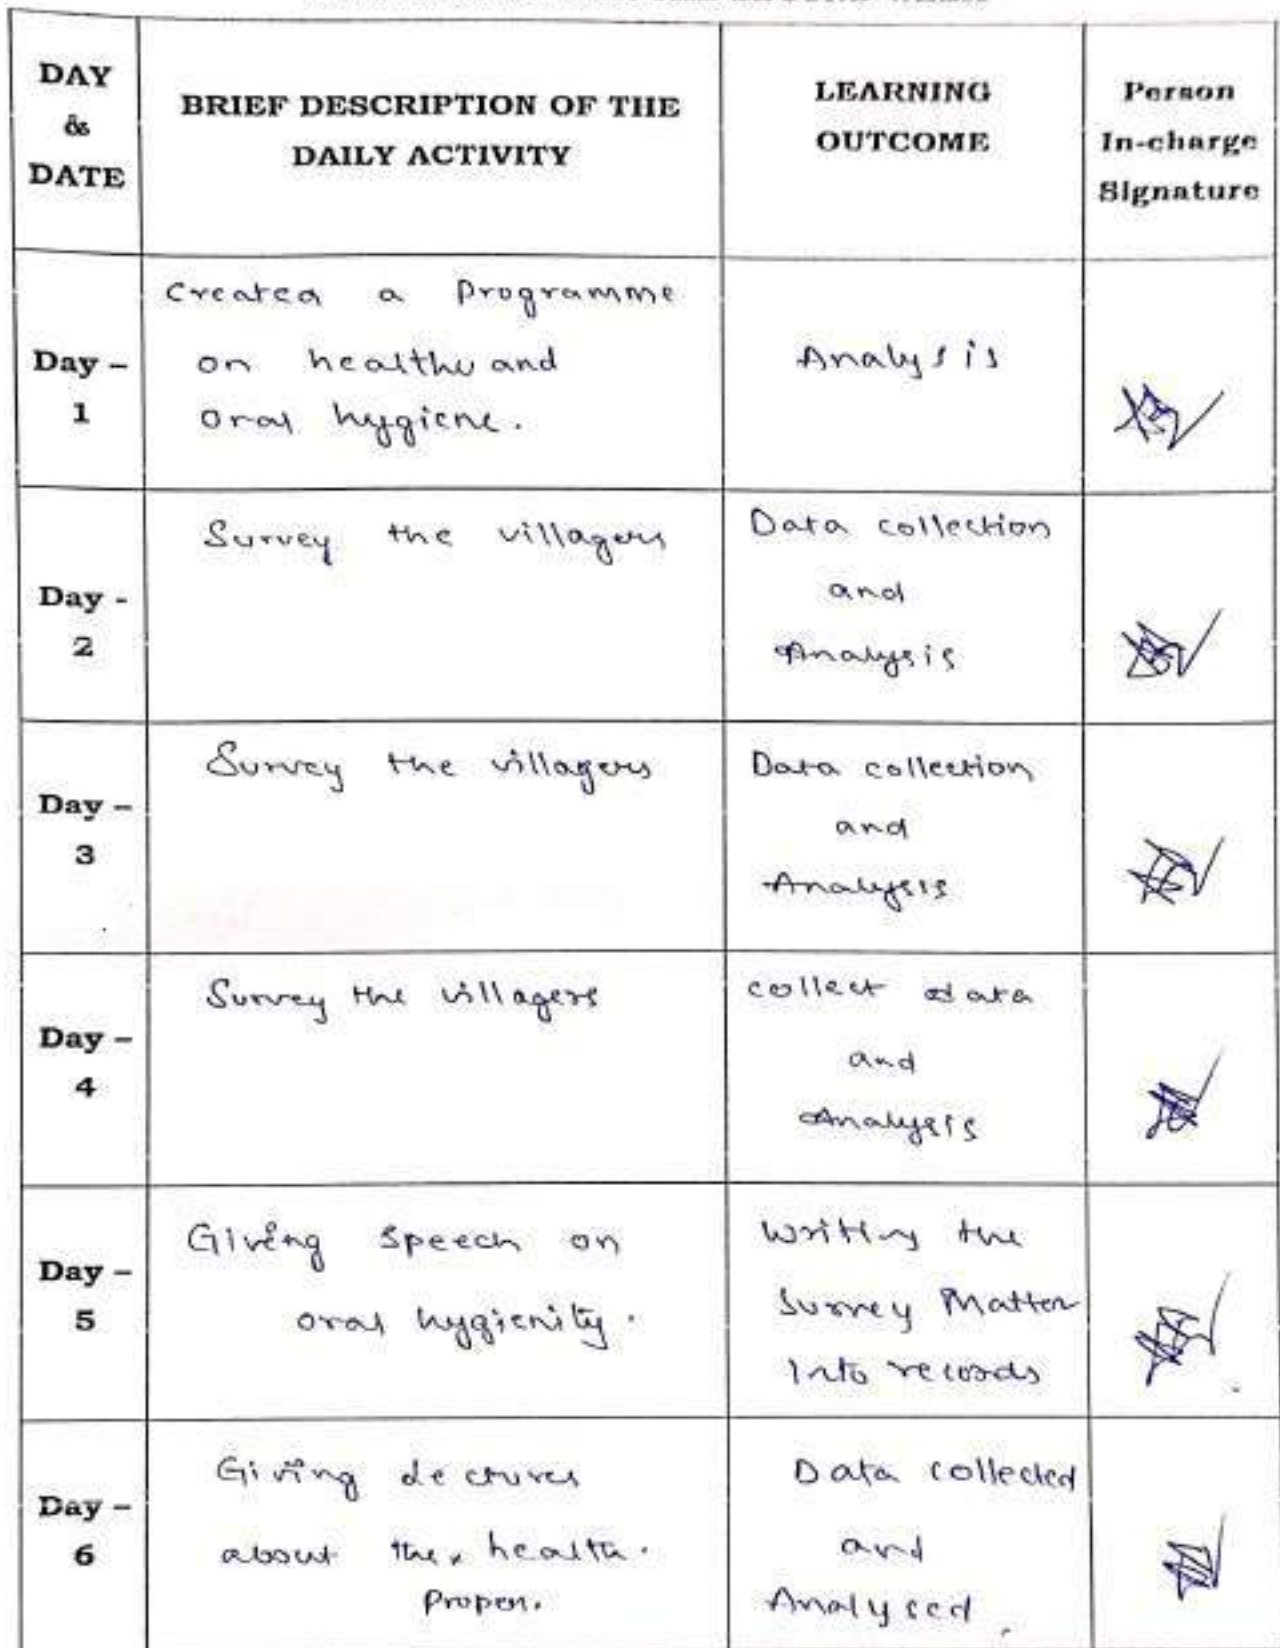 DAY
&
DATE
BRIEF DESCRIPTION OF THE
DAILY ACTIVITY
LEARNING
OUTCOME
Person
In-charge
Signature
Day –
1
Created a Programme
on healthy and
oral hygiene.
Analysis
Day -
2
Survey the villagers
Data collection
and
Analysis
Day –
3
Survey the villagers
Data collection
and
Analysis
Day –
4
Survey the villagers
collect data
and
Analysis
Day –
5
Giving speech on
oral hygienity.
Writing the
Survey Matter
Into records
Day –
6
Giving lectures
about the x health.
Proper.
Data collected
and
Analysed